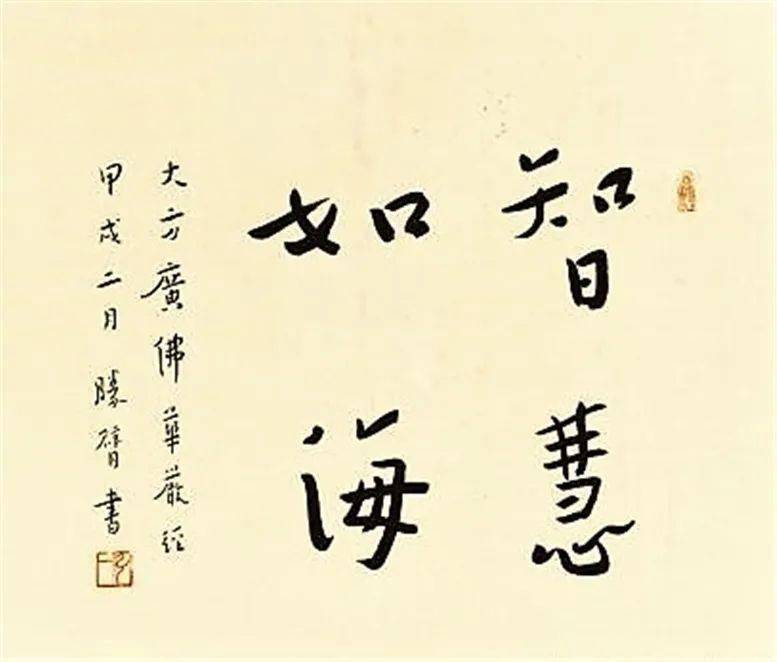 智慧
如海
大方廣佛華嚴經
甲戌二月 勝胥書